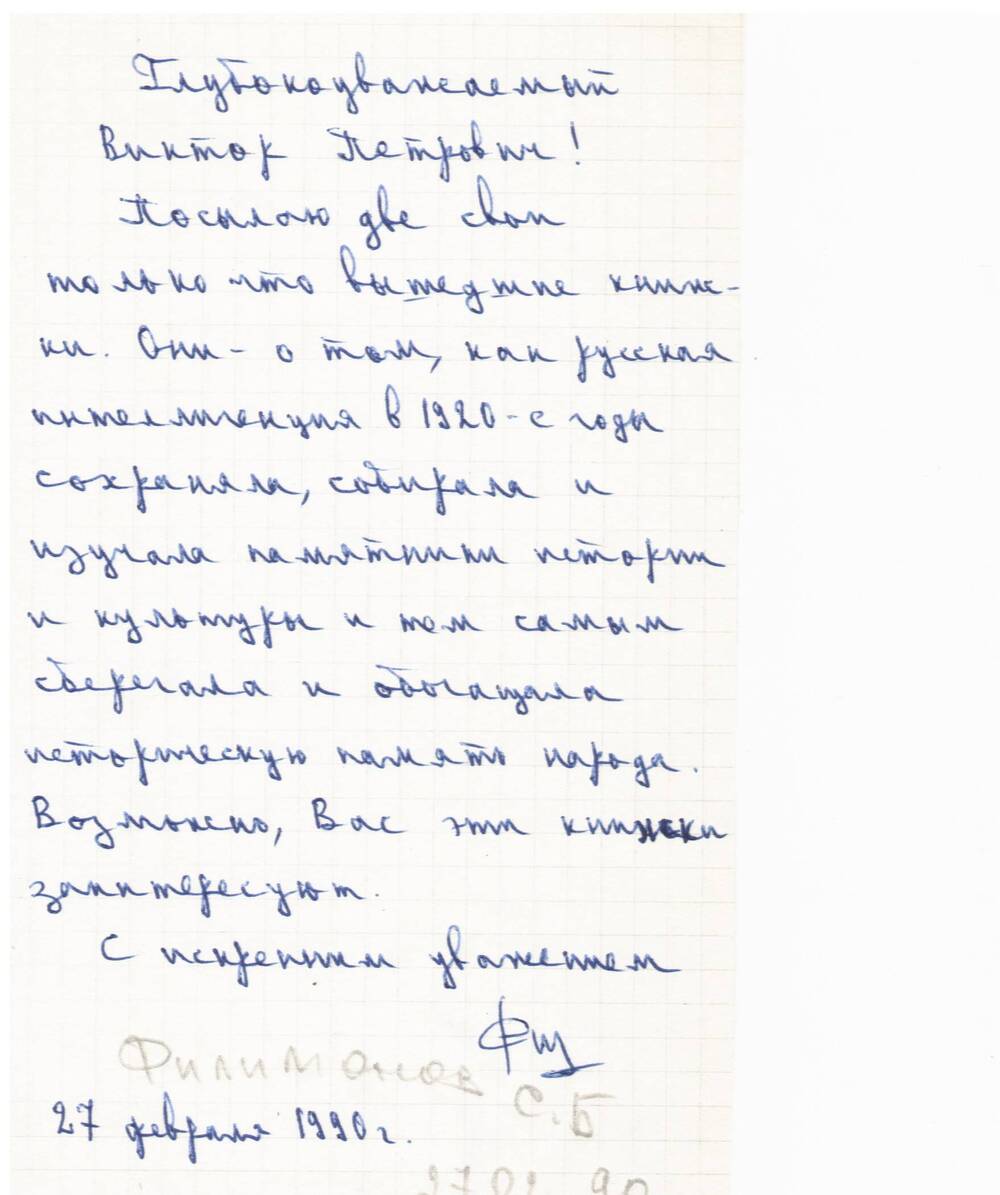 Глубокоуважаемый
Виктор Петрович!
Посылаю две свои
только что вышедшие книж-
ки. Они - о том, как русская
интеллигенция в 1920-е годы
сохраняла, собирала и
изучала памятники истории
и культуры и тем самым
сберегала и обогащала
историческую память народа.
Возможно, Вас эти книжки
заинтересуют.
С искренним уважением
Филимонов
С.Б
27 февраля 1990 г.